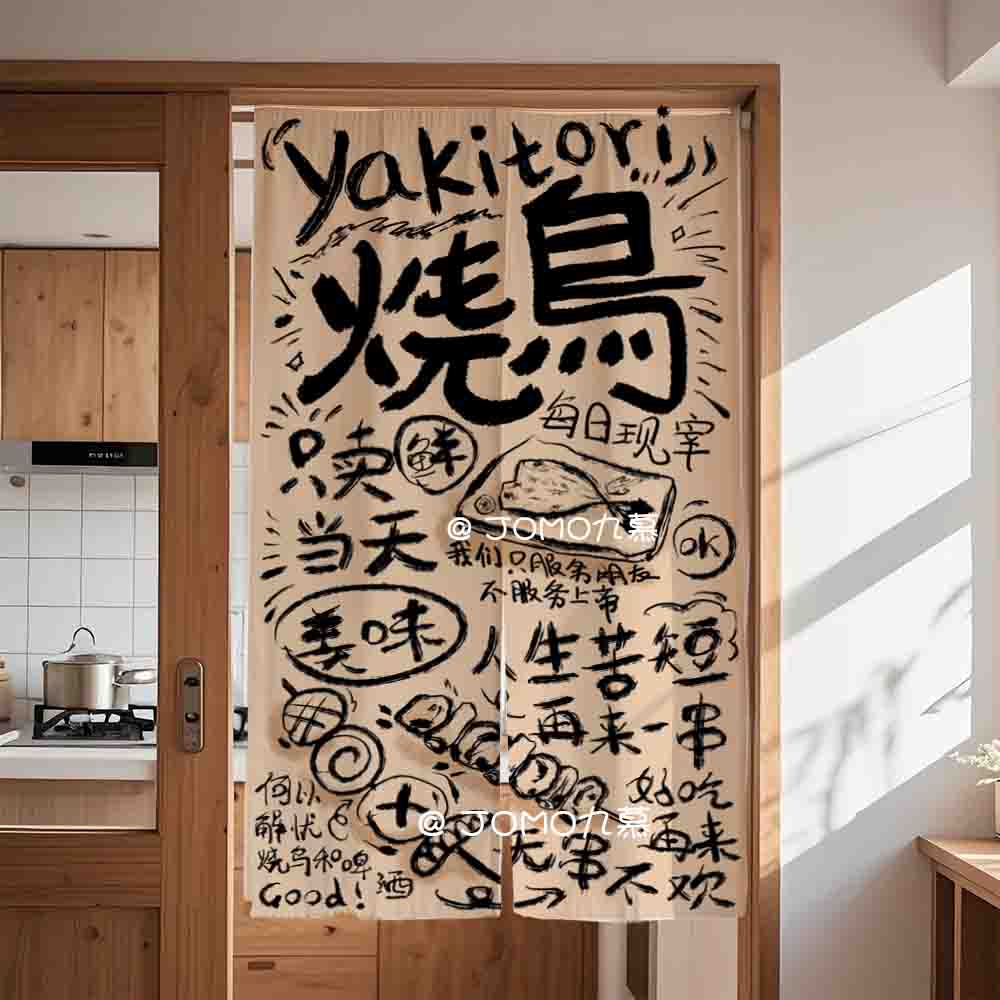 Yakitori
烧鳥
每日现宰
只卖鲜
当天
@ JOMO九慕
OK
我们只服务朋友
不服务上帝
美味
人生苦短
再来一串
何以
解忧
烧鸟和啤酒
Good!
十
@ JOMO九慕
无串不欢
好吃
再来